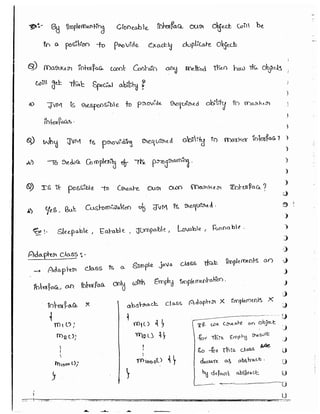 Ex:- By Implementing Cloneable Interface our object will be
in a position to provide Exactly duplicate objects
Q) Marker Interface cont Contain any method then how the objects
will get that Special ability?
A) JVM is responsible to provide required ability in marker
interfaces.
Q) Why JVM is providing required ability in marker interfaces?
A) To reduce Complexity of the programming.
Q) Is it possible to Create our own Marker Interface?
A) Yes, But Customization of JVM is required.
Ex:- Sleepable, Eatable, Jumpable, Lovable, Funnable.
Adapter Class:-
→ Adapter class is a Simple java class that Implements an
interface, an Interface only with Empty Implementation.
Interface X
{
m1();
m2();
m1000();
}
abstract class AdapterX implements X
{
m1() { }
m2() { }
m1000() { }
}
If we Create an object
for this Empty
So for this class
declare as abstract.
by default abstract